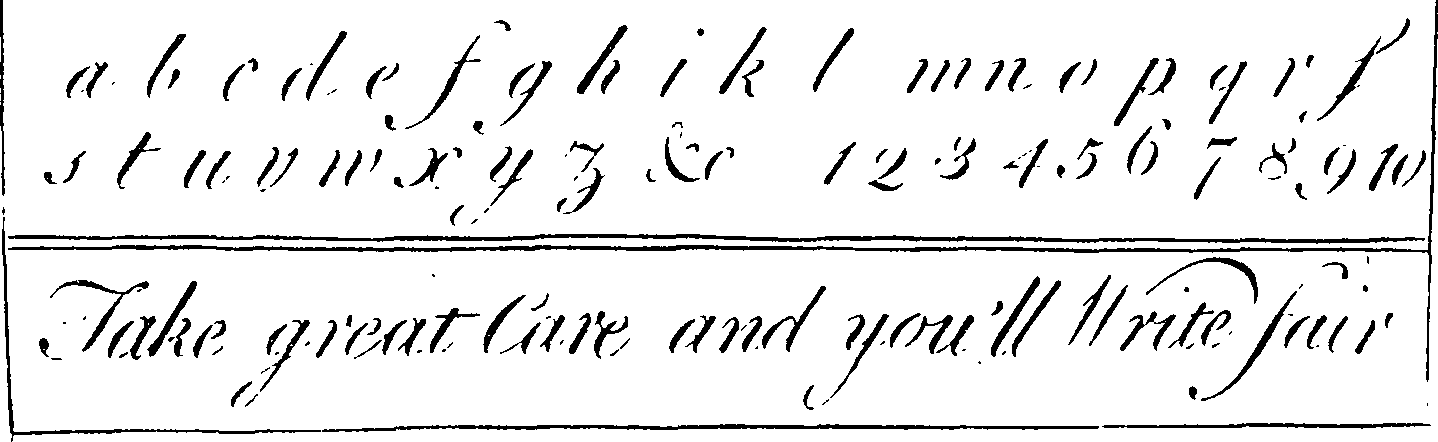 a b c d e f g h i k l m n o p q r ſ
s t u v w x y z &c 1 2 3 4 5 6 7 8 9 10
Take great Care and you'll Write fair